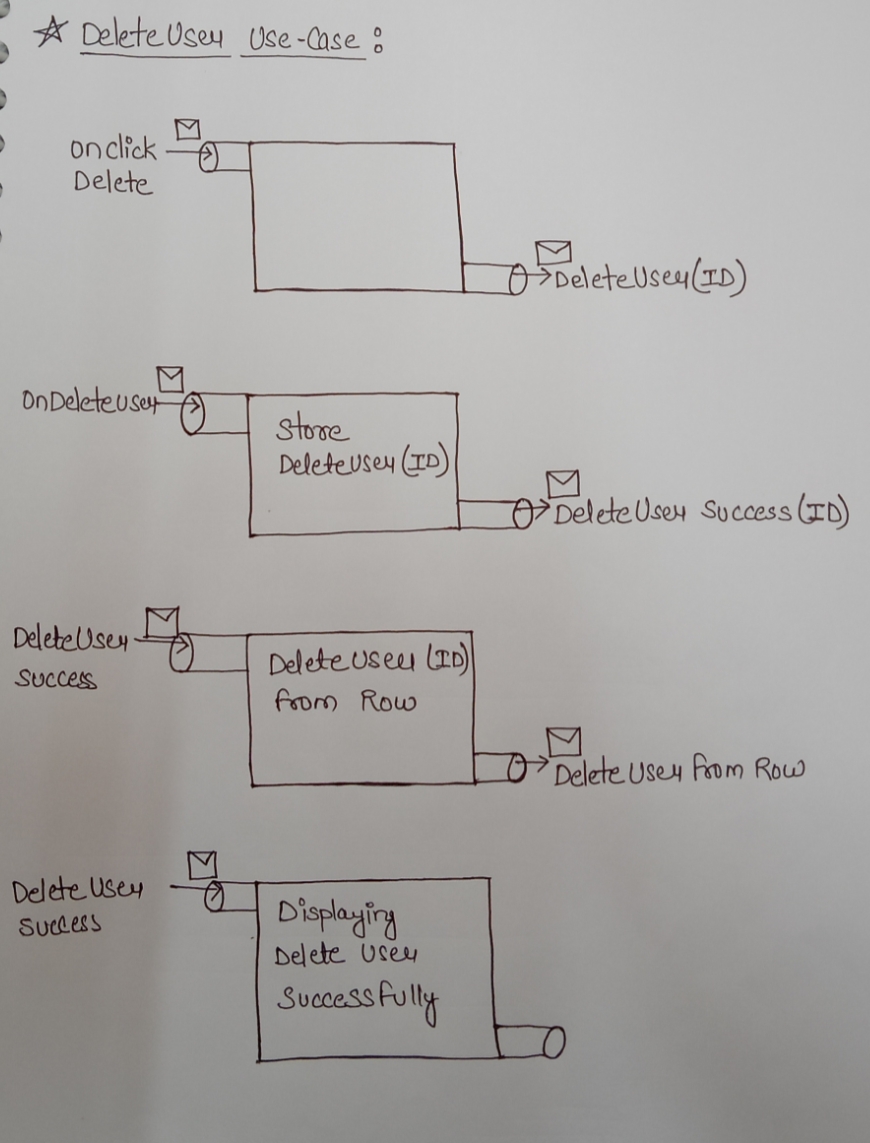 ☆ DeleteUser Use-Case:
onclick
Delete
DeleteUser(ID)
OnDeleteuser
Store
DeleteUser(ID)
DeleteUser Success(ID)
DeleteUser
Success
DeleteUser (ID)
from Row
DeleteUser from Row
DeleteUser
Success
Displaying
Delete User
Successfully